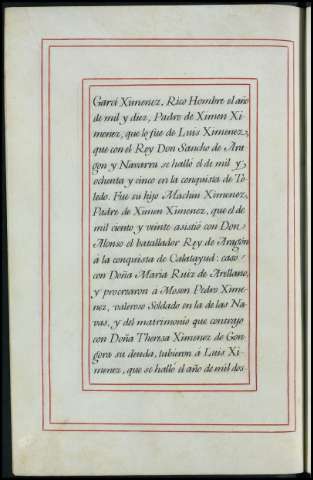 Garci Ximenez, Rico Hombre el año
de mil y diez, Padre de Ximen Xi-
menez, que lo fue de Luis Ximenez,
que con el Rey Don Sancho de Ara
gon y Navarra se halló el de mil y
ochenta y cinco en la conquista de To-
ledo. Fue su hijo Machin Ximenez,
Padre de Ximen Ximenez, que el de
mil ciento y veinte asistió con Don
Alonso el batallador Rey de Aragón
á la conquista de Calatayud: caso
con Doña Maria Ruiz de Arellano,
y procrearon á Moson Pedro Xime-
nez, valeroso Soldado en la de las Na-
vas, y del matrimonio que contrajo
con Doña Theresa Ximenez de Gon-
gora su deuda, tubieron á Luis Xi-
menez, que se halló el año de mil dos-